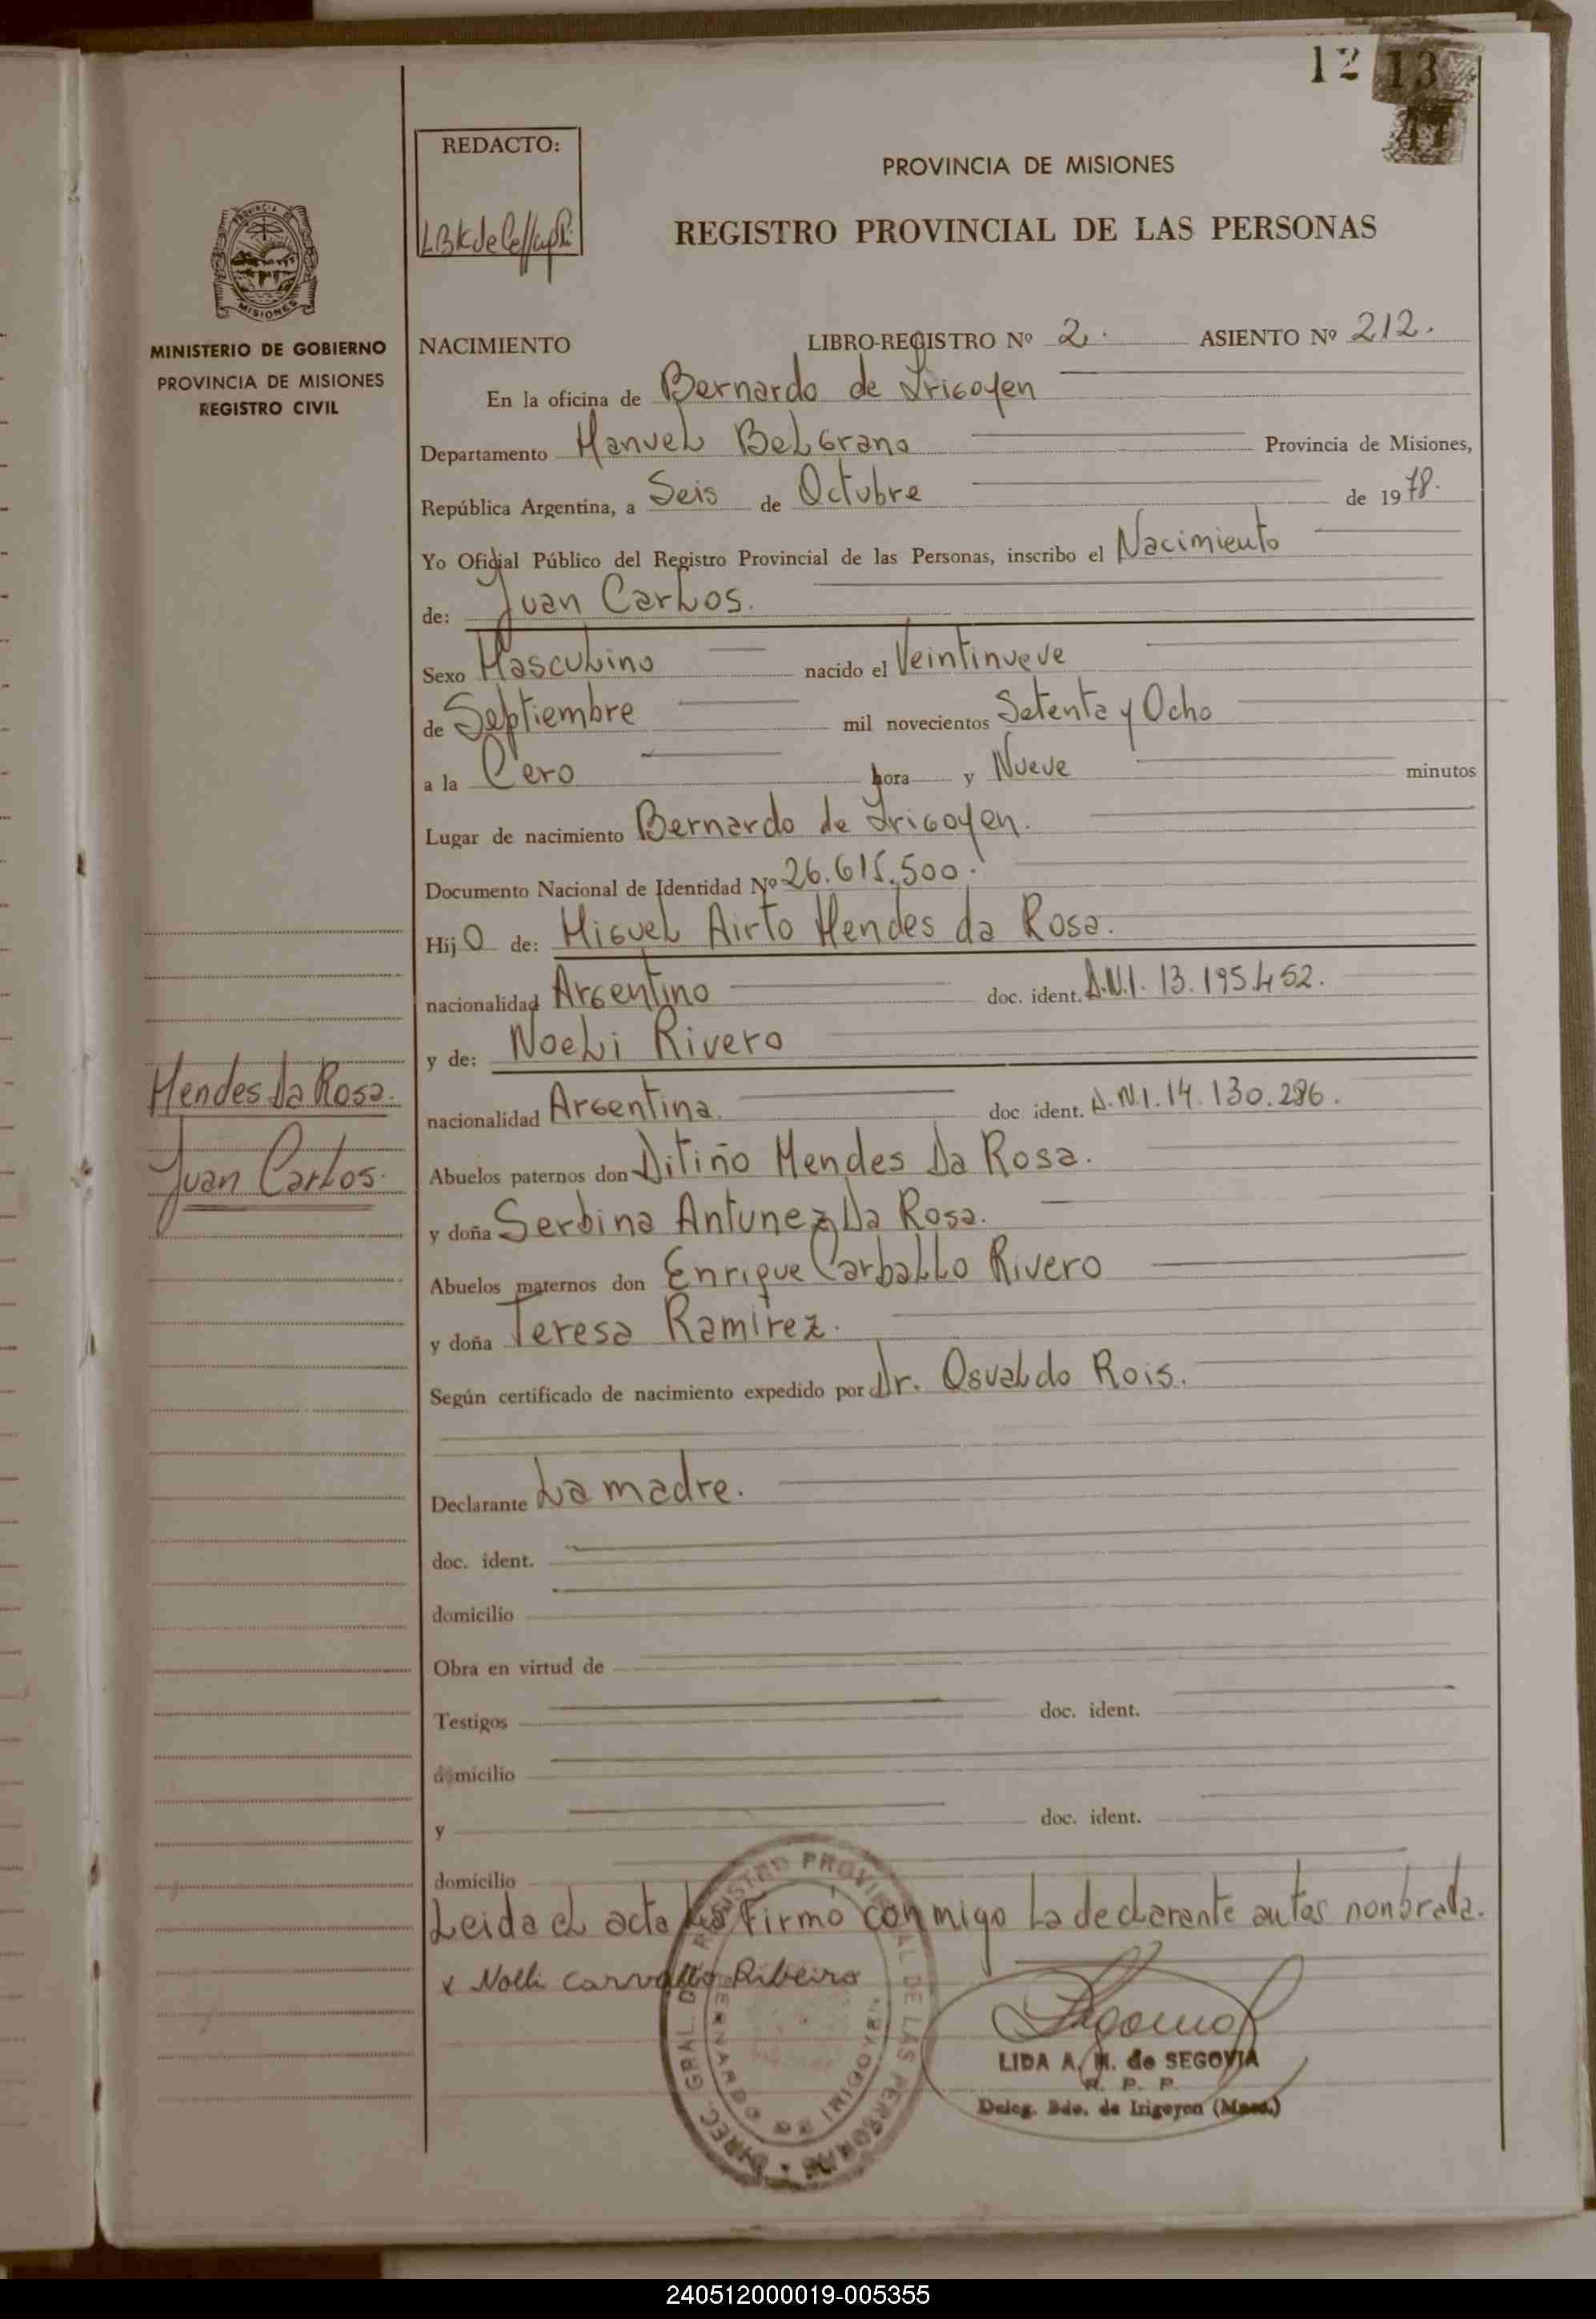 12 13
REDACTO:
PROVINCIA DE MISIONES
REGISTRO PROVINCIAL DE LAS PERSONAS
PROVINCIA DE
MISIONES
MINISTERIO DE GOBIERNO
PROVINCIA DE MISIONES
REGISTRO CIVIL
NACIMIENTO LIBRO-REGISTRO Nº 2. ASIENTO Nº 212.
En la oficina de Bernardo de Irigoyen
Departamento Manuel Belgrano Provincia de Misiones,
República Argentina, a Seis de Octubre de 1978.
Yo Oficial Público del Registro Provincial de las Personas, inscribo el Nacimiento
de: Juan Carlos.
Sexo Masculino nacido el Veintinueve
de Septiembre mil novecientos Setenta y Ocho
a la Cero hora y Nueve minutos
Lugar de nacimiento Bernardo de Irigoyen.
Documento Nacional de Identidad Nº 26.615.500.
Hijo de: Miguel Airto Mendes da Rosa.
nacionalidad Argentino doc. ident. D.N.I. 13.195.452.
y de: Noeli Rivero
Mendes Da Rosa.
nacionalidad Argentina. doc. ident. D.N.I. 14.130.286.
Juan Carlos.
Abuelos paternos don Ditiño Mendes Da Rosa.
y doña Serbina Antunez Da Rosa.
Abuelos maternos don Enrique Carballo Rivero
y doña Teresa Ramirez.
Según certificado de nacimiento expedido por Dr. Osvaldo Rois.
Declarante La madre.
doc. ident.
domicilio
Obra en virtud de
Testigos doc. ident.
domicilio
y doc. ident.
domicilio
Leida el acta la Firmó conmigo La declarante antes nonbrada.
x Noeli Carvallo Ribeiro
DIREC. GRAL. DEL REGISTRO PROVINCIAL DE LAS PERSONAS
BERNARDO DE IRIGOYEN
LIDA A. M. de SEGOVIA
R. P. P.
Deleg. Bdo. de Irigoyen (Mnes.)
240512000019-005355